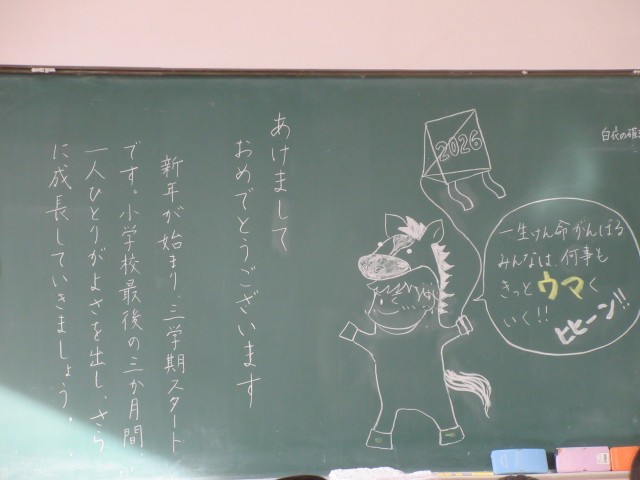 あけまして
おめでとうございます
新年が始まり、三学期スタート
です。小学校最後の三か月間…
一人ひとりがよさを出し、さら
に成長していきましょう・・
2026
一生けん命がんばる
みんなは、何事も
きっとウマく
いく!!
ヒヒーン!!
白衣の